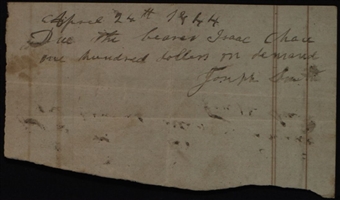 April 24th 1844
Due the bearer Isaac Chase
one hundred dollars on demand
Joseph Smith